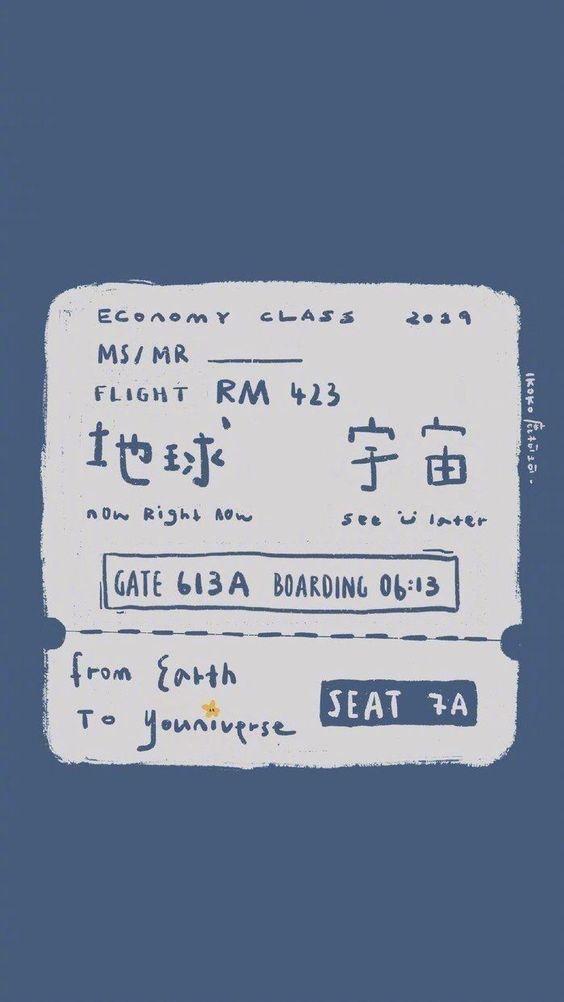 ECONOMY CLASS 2019
MS/MR
FLIGHT RM 423
地球 宇宙
now Right now see u later
GATE 613A BOARDING 06:13
from Earth
To youniverse
SEAT 7A
IKOKO